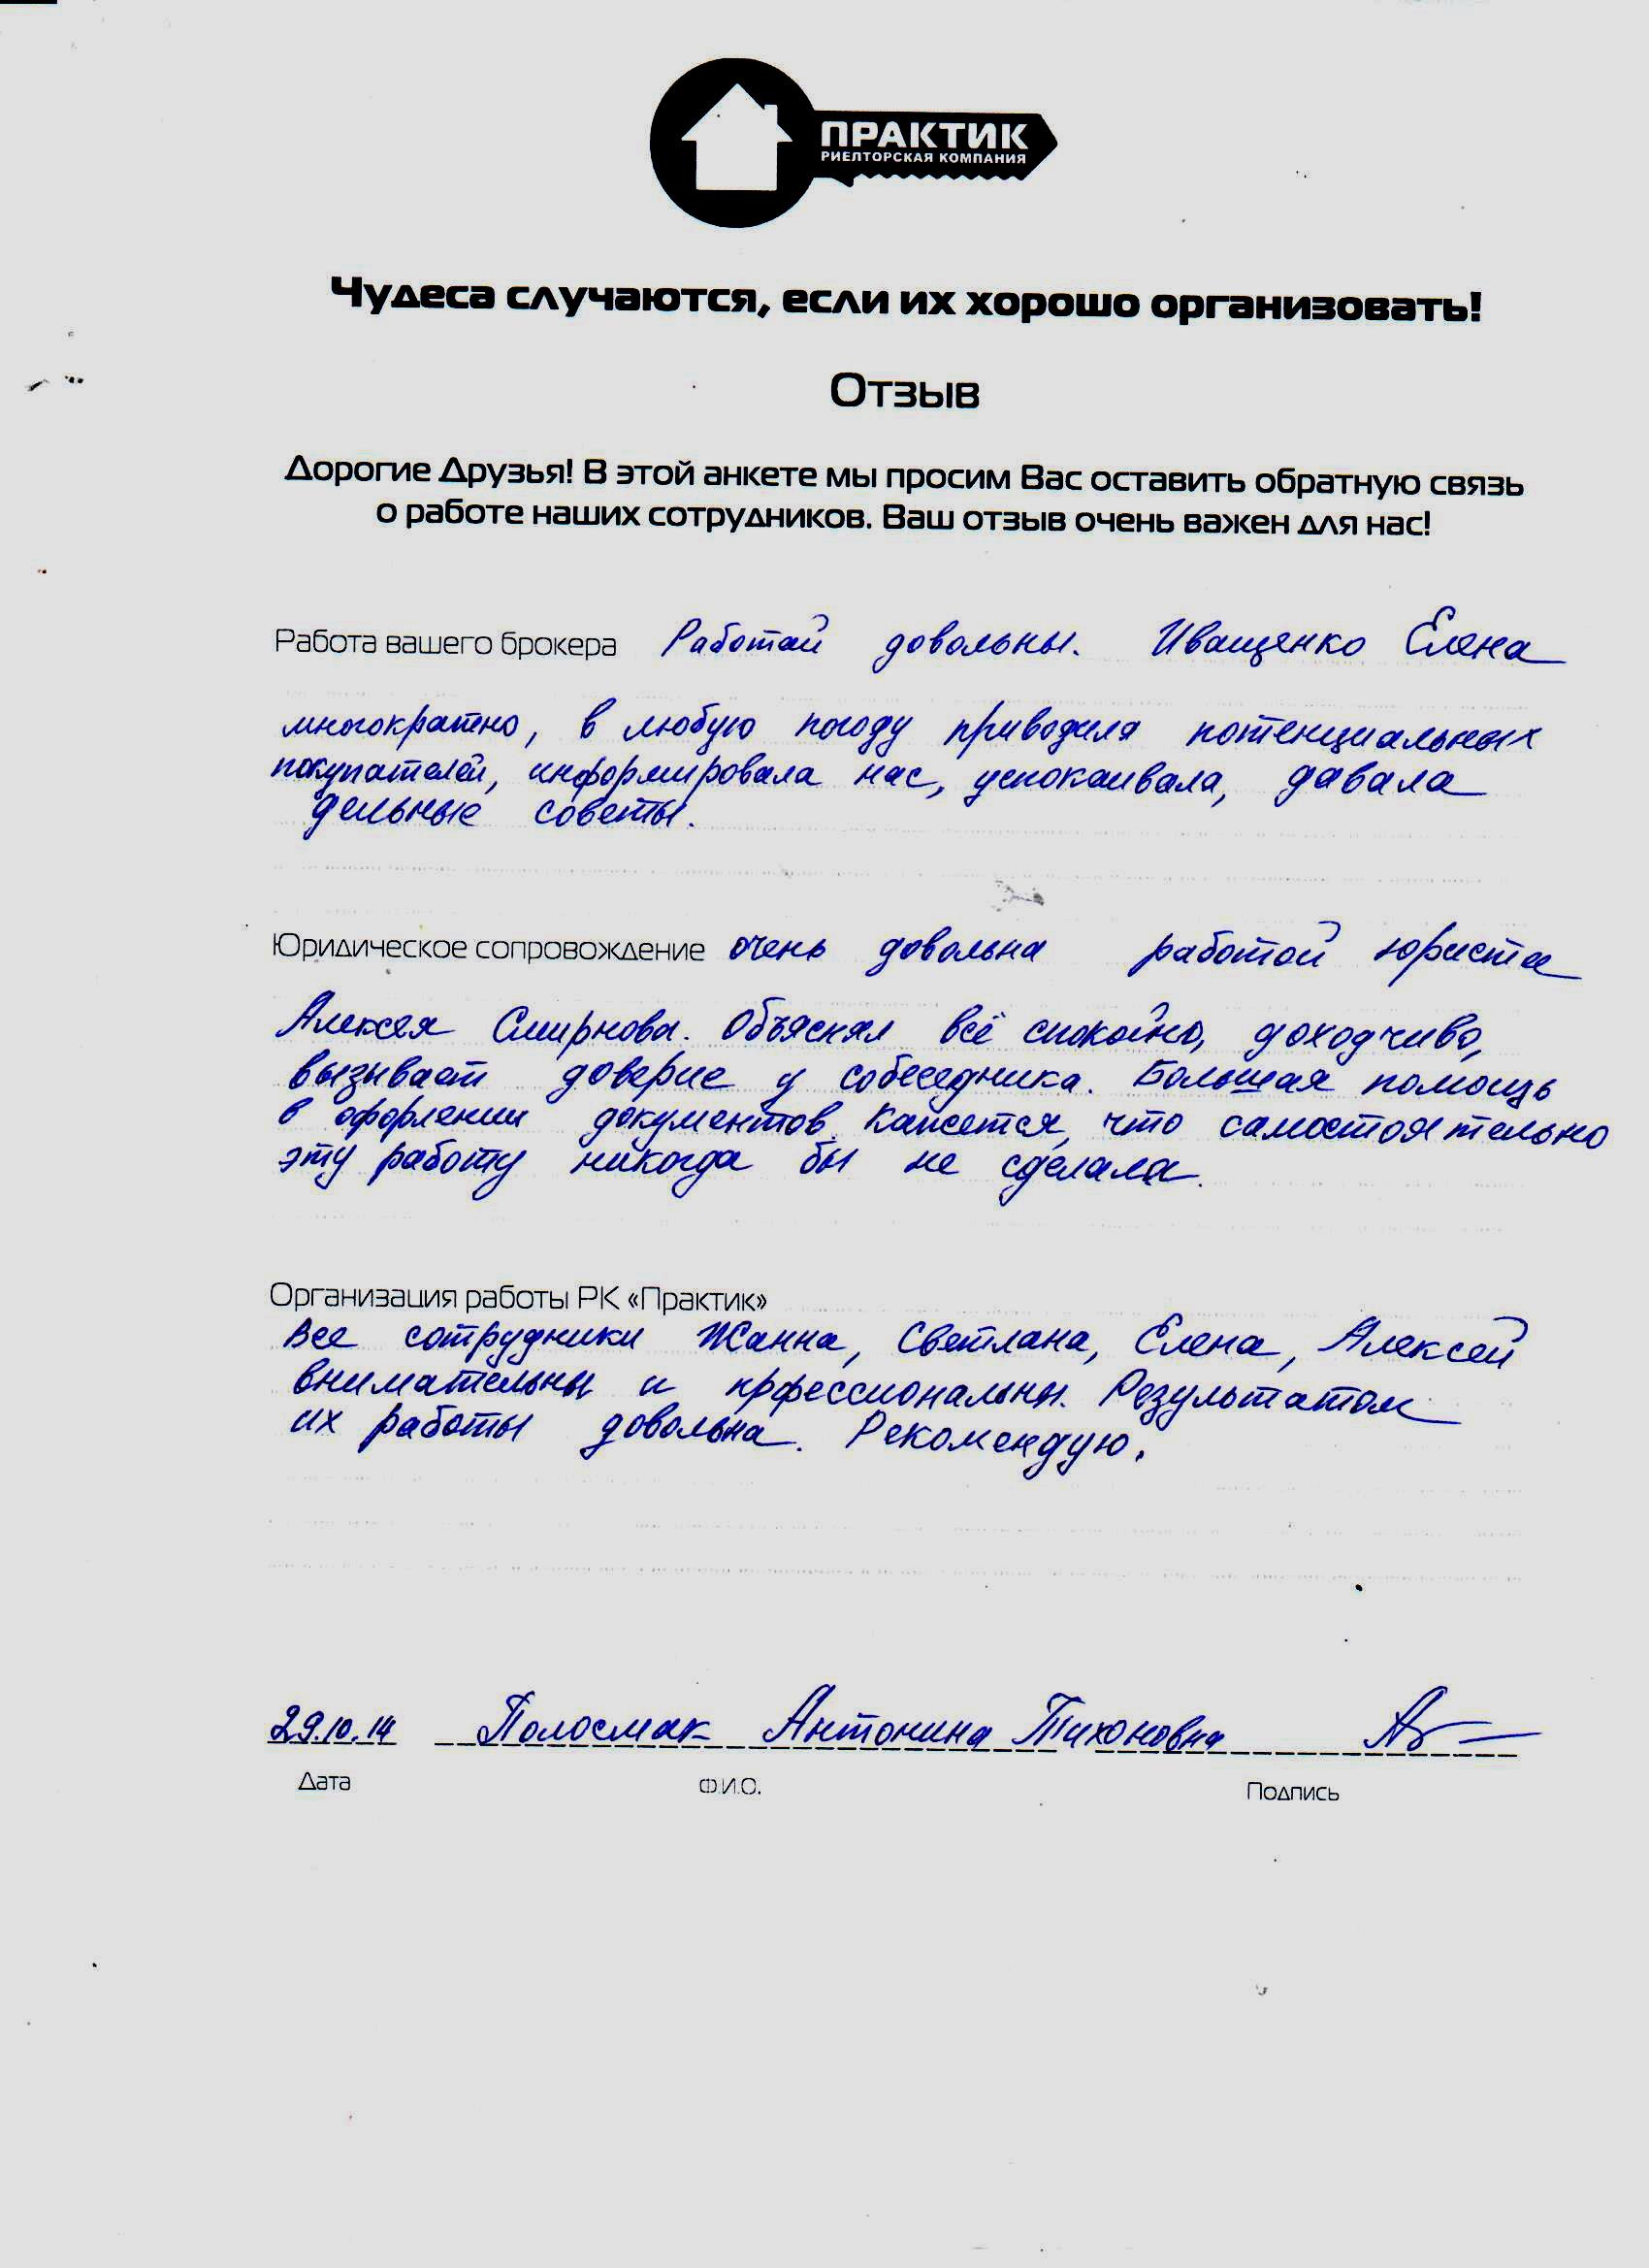 ПРАКТИК
РИЕЛТОРСКАЯ КОМПАНИЯ
Чудеса случаются, если их хорошо организовать!
Отзыв
Дорогие Друзья! В этой анкете мы просим Вас оставить обратную связь
о работе наших сотрудников. Ваш отзыв очень важен для нас!
Работа вашего брокера Работой довольны. Иващенко Елена
многократно, в любую погоду приводила потенциальных
покупателей, информировала нас, успокаивала, давала
дельные советы.
Юридическое сопровождение очень довольна работой юриста
Алексея Смирнова. Объяснял всё спокойно, доходчиво,
вызывает доверие у собеседника. Большая помощь
в офорлении документов. Кажется, что самостоятельно
эту работу никогда бы не сделала.
Организация работы РК «Практик»
Все сотрудники Жанна, Светлана, Елена, Алексей
внимательны и прфессиональны. Результатом
их работы довольна. Рекомендую.
29.10.14 Полосмак Антонина Тихоновна
Дата Ф.И.О. Подпись